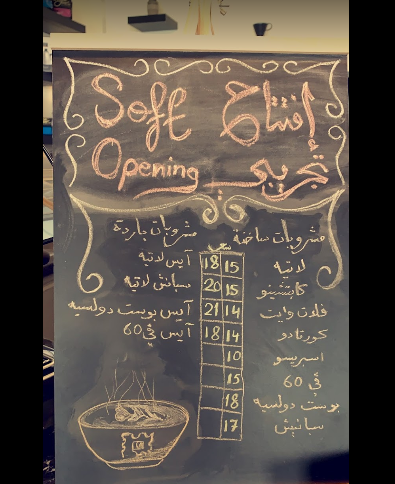 Soft
Opening
إفتتاح
تجريبي
مشروبات ساخنة
سعر
مشروبات باردة
لاتيه 15
كابتشينو 15
فلات وايت 14
كورتادو 14
اسبريسو 10
ڤي 60 15
بوست دولسيه 18
سبانش 17
آيس لاتيه 18
سبانش لاتيه 20
آيس بوست دولسيه 21
آيس ڤي 60 18